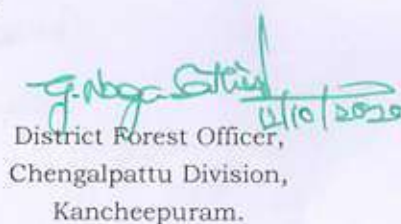 G. Naga Sathis
District Forest Officer,
Chengalpattu Division,
Kancheepuram.